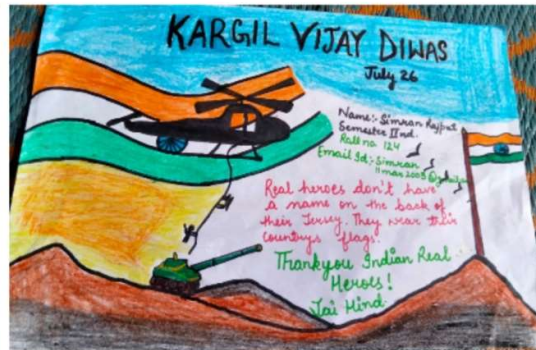 KARGIL VIJAY DIWAS
July 26
Name:- Simran Rajput
Semester IInd.
Roll no. 124
Email Id:- Simran
11 mar 2003
Real heroes don't have
a name on the back of
their Jersey. They wear their
countrys flags.
Thankyou Indian Real
Heroes!
Jai Hind